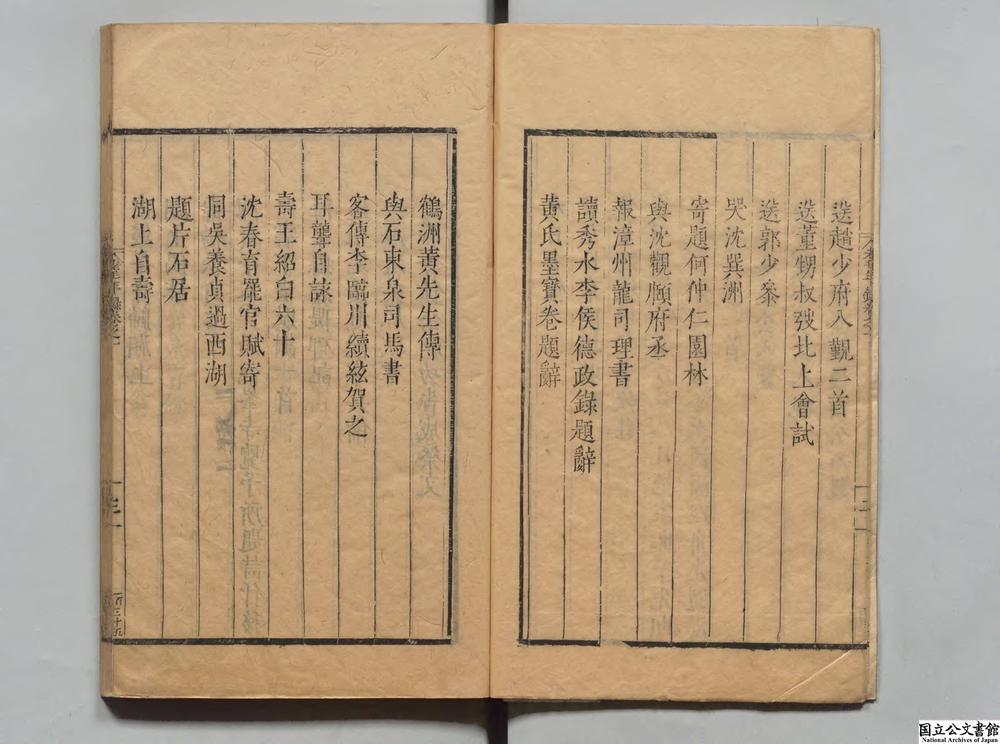 送趙少府入覲二首
送董甥叔弢北上會試
送郭少叅
哭沈巽洲
寄題何仲仁園林
與沈觀頤府丞
報漳州龍司理書
讀秀水李侯德政錄題辭
黃氏墨寳卷題辭
鶴洲黃先生傳
與石東泉司馬書
客傳李臨川續絃賀之
耳聾自諫
壽王紹白六十
沈春育罷官賦寄
同吳養貞過西湖
題片石居
湖上自壽
国立公文書館
National Archives of Japan